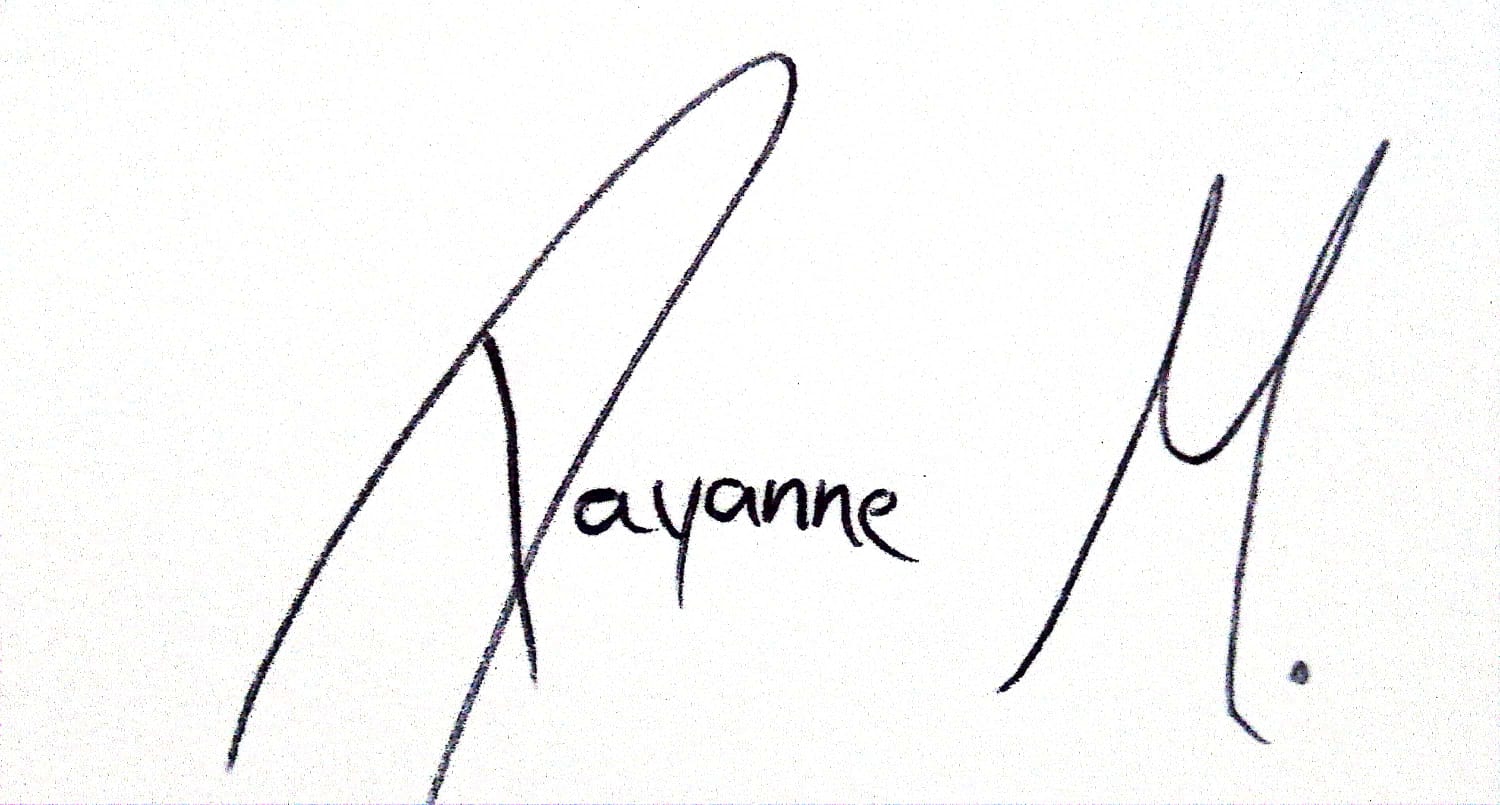 Rayanne M.